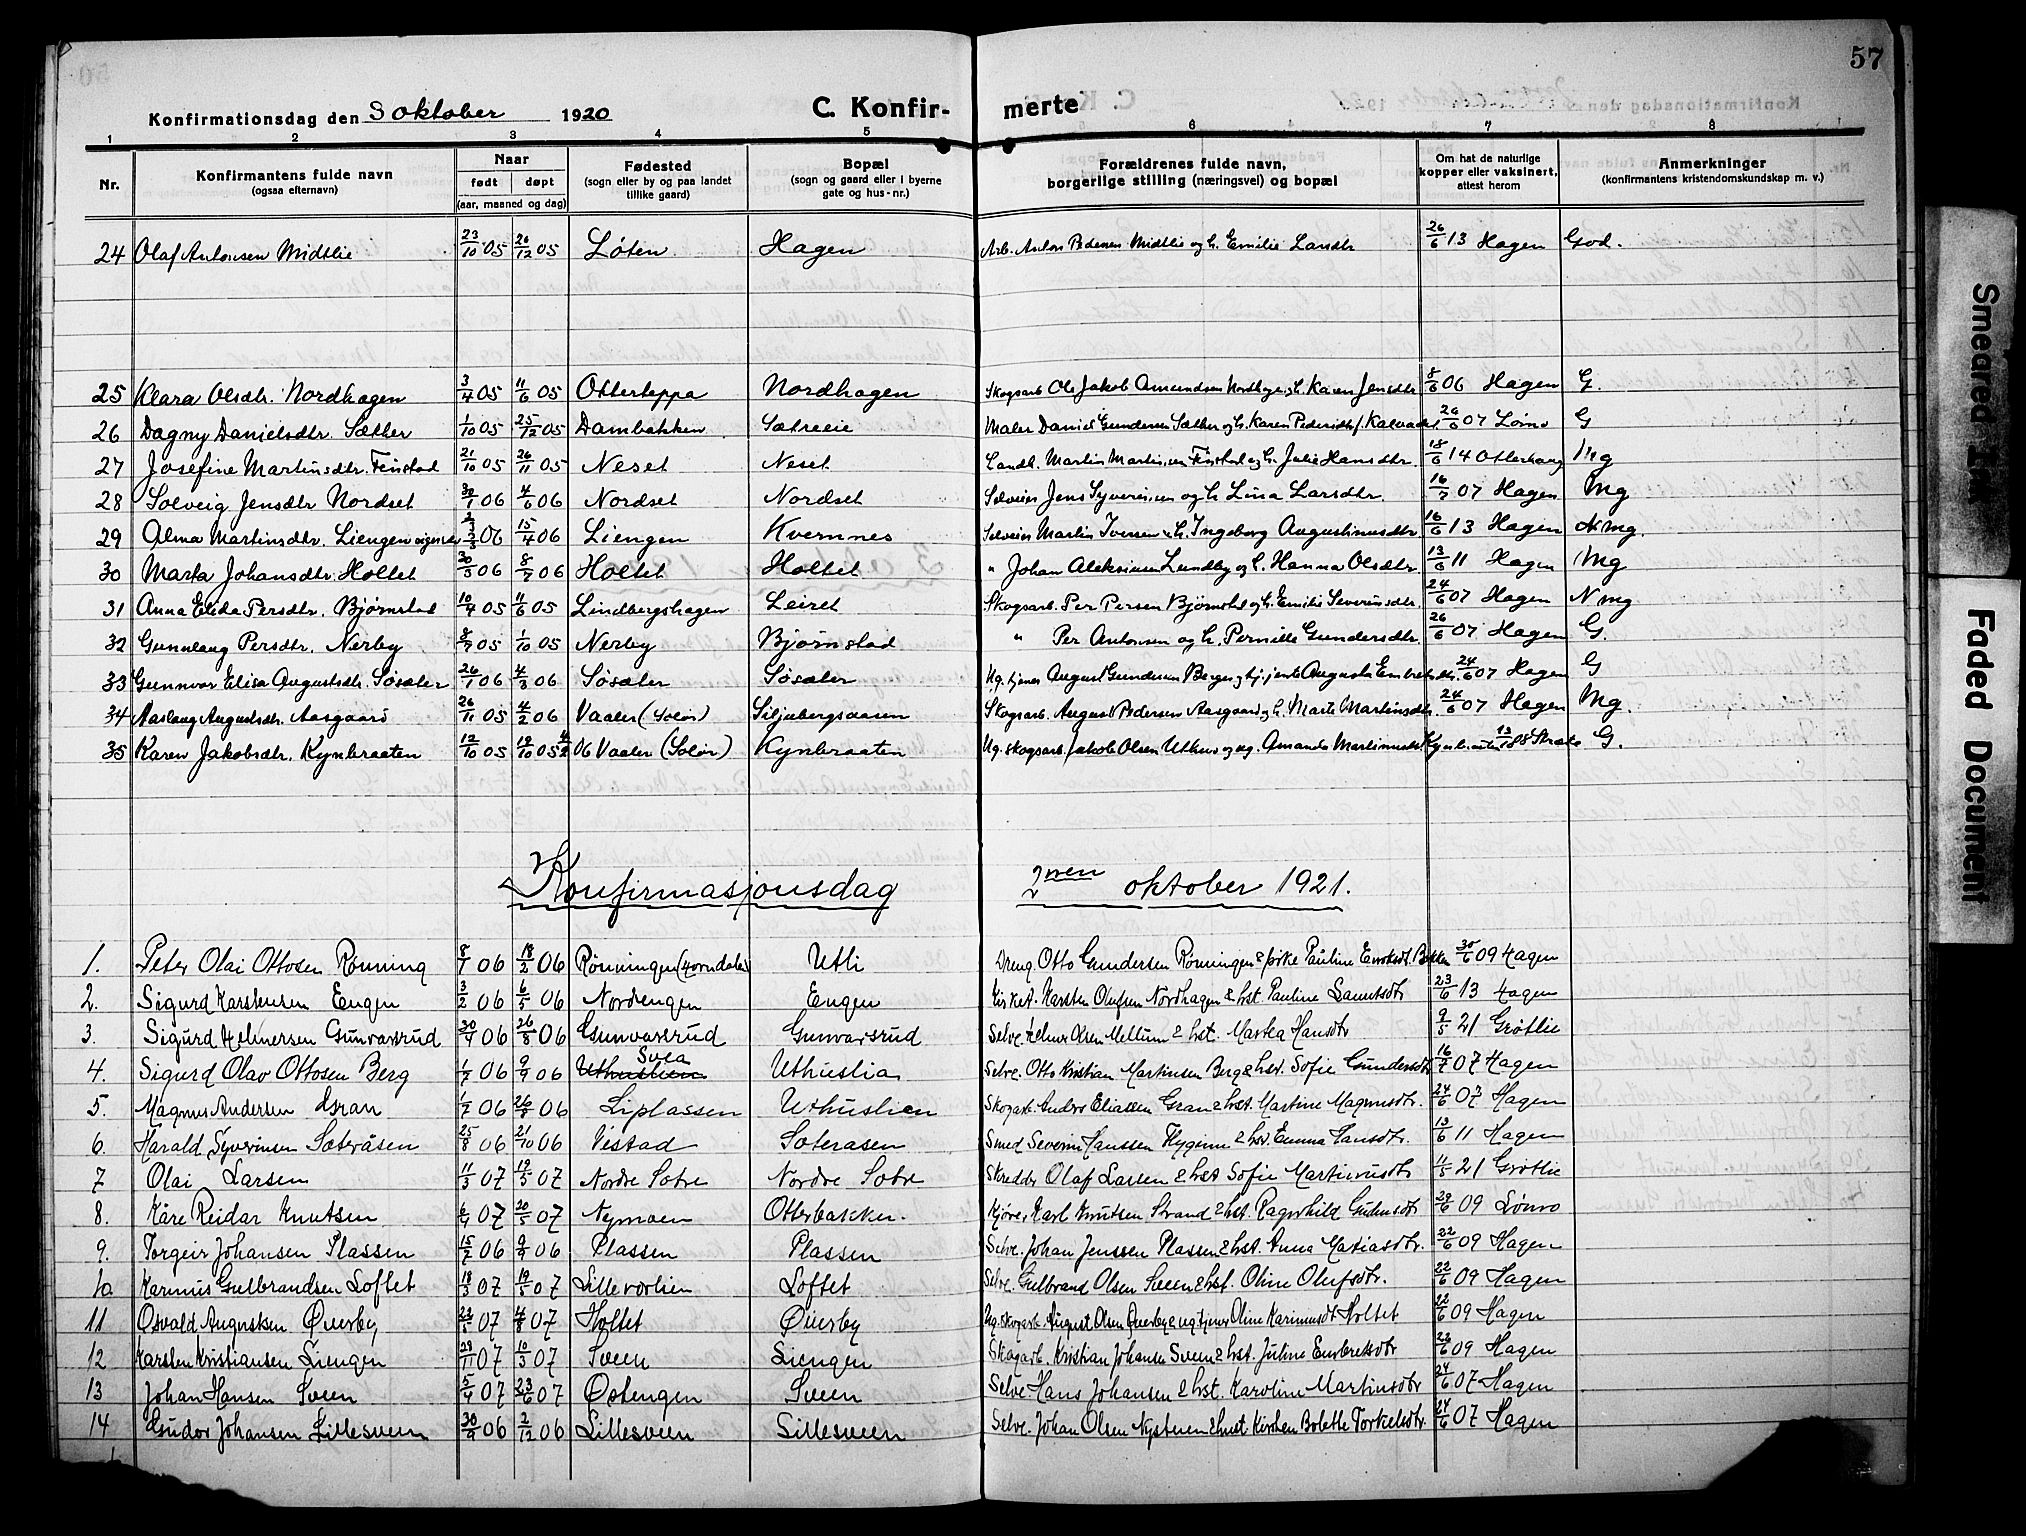 57
Konfirmationsdag den 3 oktober 1920 C. Konfir- merte
1 2 3 4 5 6 7 8
Nr. Konfirmantens fulde navn (ogsaa efternavn) Naar født døpt (aar, maaned og dag) Fødested (sogn eller by og paa landet tillike gaard) Bopæl (sogn og gaard eller i byerne gate og hus-nr.) Forældrenes fulde navn, borgerlige stilling (næringsvei) og bopæl Om hat de naturlige kopper eller vaksinert, attest herom Anmerkninger (konfirmantens kristendomskundskap m. v.)
24 Olaf Antonsen Midtlie 23/10 05 26/12 05 Løten Hagen Arb. Anton Pedersen Midtlie og h. Emilie Larsdtr 26/6 13 Hagen God.
25 Klara Olsdtr. Nordhagen 3/4 05 11/6 05 Otterteppa Nordhagen Skogsarb Ole Jakob Amundsen Nordhagen h. Karen Jensdtr 8/6 06 Hagen G.
26 Dagny Danielsdtr. Sæther 1/10 05 25/12 05 Dambakken Sætreeie Maler Daniel Gundersen Sæther og h. Karen Pedersdtr 26/6 07 Lømo G
27 Josefine Martinsdtr. Finstad 21/10 05 26/11 05 Neset Neset Landh. Martin Martinsen Finstad og h. Julie Hansdtr. 18/6 14 Otterhaug Mg
28 Solveig Jensdtr Nordset 30/1 06 4/6 06 Nordset Nordset Selveier Jens Syversen og h. Lina Larsdtr. 16/7 07 Hagen Mg
29 Alma Martinsdtr. Liengen 06 15/4 06 Liengen Kvernnes Selveier Martin Iversen h. Ingeborg Augustinusdtr 16/6 13 Hagen Nmg.
30 Marta Johansdtr. Holtet 20/3 06 8/7 06 Holtet Holtet " Johan Aleksiusen Lundby og h. Hanna Olsdtr 13/6 11 Hagen Mg
31 Anna Elida Persdtr. Bjørnstad 10/4 05 11/6 05 Lindbergshagen Leiret Skogsarb. Per Persen Bjørnstad og h. Emilie Severinsdtr. 24/6 07 Hagen Nmg
32 Gunnlaug Persdtr. Nerby 8/7 05 1/10 05 Nerby Bjørnstad " Per Antonsen og h. Pernille Gundersdtr 26/6 07 Hagen G.
33 Gunnvor Elisa Augustsdtr. Søsæter 26/1 06 4/3 06 Søsæter Søsæter Ug. tjener August Gundersen Berger og pige Augusta 24/6 07 Hagen G
34 Aaslaug Augustsdtr. Aasgaard 26/11 05 4/2 06 Vaaler (Solør) Siljubergsaasen Skogsarb. August Pedersen Aasgaard og h. Marte Martinsdtr. 24/6 07 Hagen Mg.
35 Karen Jakobsdtr. Kynbraaten 12/10 05 06 Vaaler (Solør) Kynbraaten Ug. skogsarb. Jakob Olsen Uthus og ug. Amanda Martinusdtr G.
Konfirmasjonsdag 2nen oktober 1921.
1. Peter Olai Ottosen Rønning 8/1 06 18/2 06 Rønningen (Horndalen) Utli Dreng. Otto Gundersen Rønningen & pike Pauline 30/6 09 Hagen
2. Sigurd Karstensen Engen 3/2 06 6/5 06 Nordengen Engen Karsten Olufsen Nordhagen & hst. Pauline 23/6 13 Hagen
3. Sigurd Helmersen Gunvarsrud 30/4 06 26/8 06 Gunvarsrud Gunvarsrud Selve. Helmer Olsen Mellum & hst. Martea Hansdtr 9/5 21 Grøtlie
4. Sigurd Olav Ottosen Berg 1/7 06 9/9 06 Uthuslien Svea Uthuslia Selve. Otto Kristian Martinsen Berg & hst. Sofie Gundersdtr 16/7 07 Hagen
5. Magnus Andersen Gran 1/7 06 26/8 06 Liplassen Uthuslien Skogarb. Anders Eliassen Gran & hst. Martine Magnusdtr. 24/6 07 Hagen
6. Harald Syversen Sæteråsen 25/8 06 21/10 06 Vestad Sæterasen Smed Severin Hanssen & hst. Emma Hansdtr. 13/6 11 Hagen
7 Olai Larsen 11/3 07 19/5 07 Nordre Sætre Nordre Sætre Skredder Olaf Larsen & hst Sofie Martinusdtr 11/5 21 Grøtlie
8. Kåre Reidar Knutsen 6/4 07 20/5 07 Nymoen Otterbakken. Kjører Karl Knutsen Strand & hst. Ragnhild 29/6 09 Lømo
9. Torgeir Johansen Plassen 15/7 06 9/9 06 Plassen Plassen Selve. Johan Jenssen Plassen & hst. Anna Mathiasdtr. 22/6 09 Hagen
10. Karinus Gulbrandsen Loftet 18/3 07 19/5 07 Lillevorlien Loftet Selve. Gulbrand Olsen Sveen & hst. Oline Olufsdtr. 22/6 09 Hagen
11 Osvald Augustsen Øverby 22/5 07 4/8 07 Holtet Øverby Ug. skogarb. August Olsen Øverby & ug. tjener Oline Karinusdtr Holtet 22/6 09 Hagen
12 Karsten Kristiansen Liengen 29/11 07 10/3 07 Sveen Liengen Skogarb. Kristian Johansen Sveen & hst. Juline Embretsdtr 22/6 09 Hagen
13 Johan Hansen Sveen 5/4 07 23/6 07 Østengen Sveen Selve Hans Johansen & hst. Karoline Martinsdtr 24/6 07 Hagen
14 Gudor Johansen Lillesveen 30/9 06 2/12 06 Lillesveen Lillesveen Selve. Johan Olsen Nystuen & hust. Kirsten Bolette Torkelsdtr. 24/6 07 Hagen
Smeared Ink
Faded Document